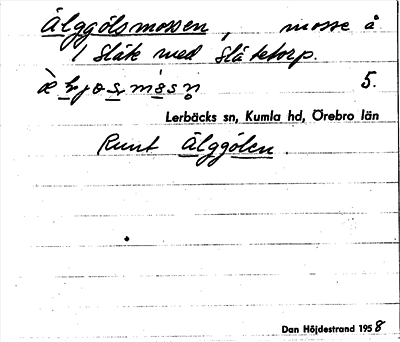 Älggölsmossen, mosse å
1 Släk med Slätetorp.
5.
Lerbäcks sn, Kumla hd, Örebro län
Runt Älggölen.
Dan Höjdestrand 1958